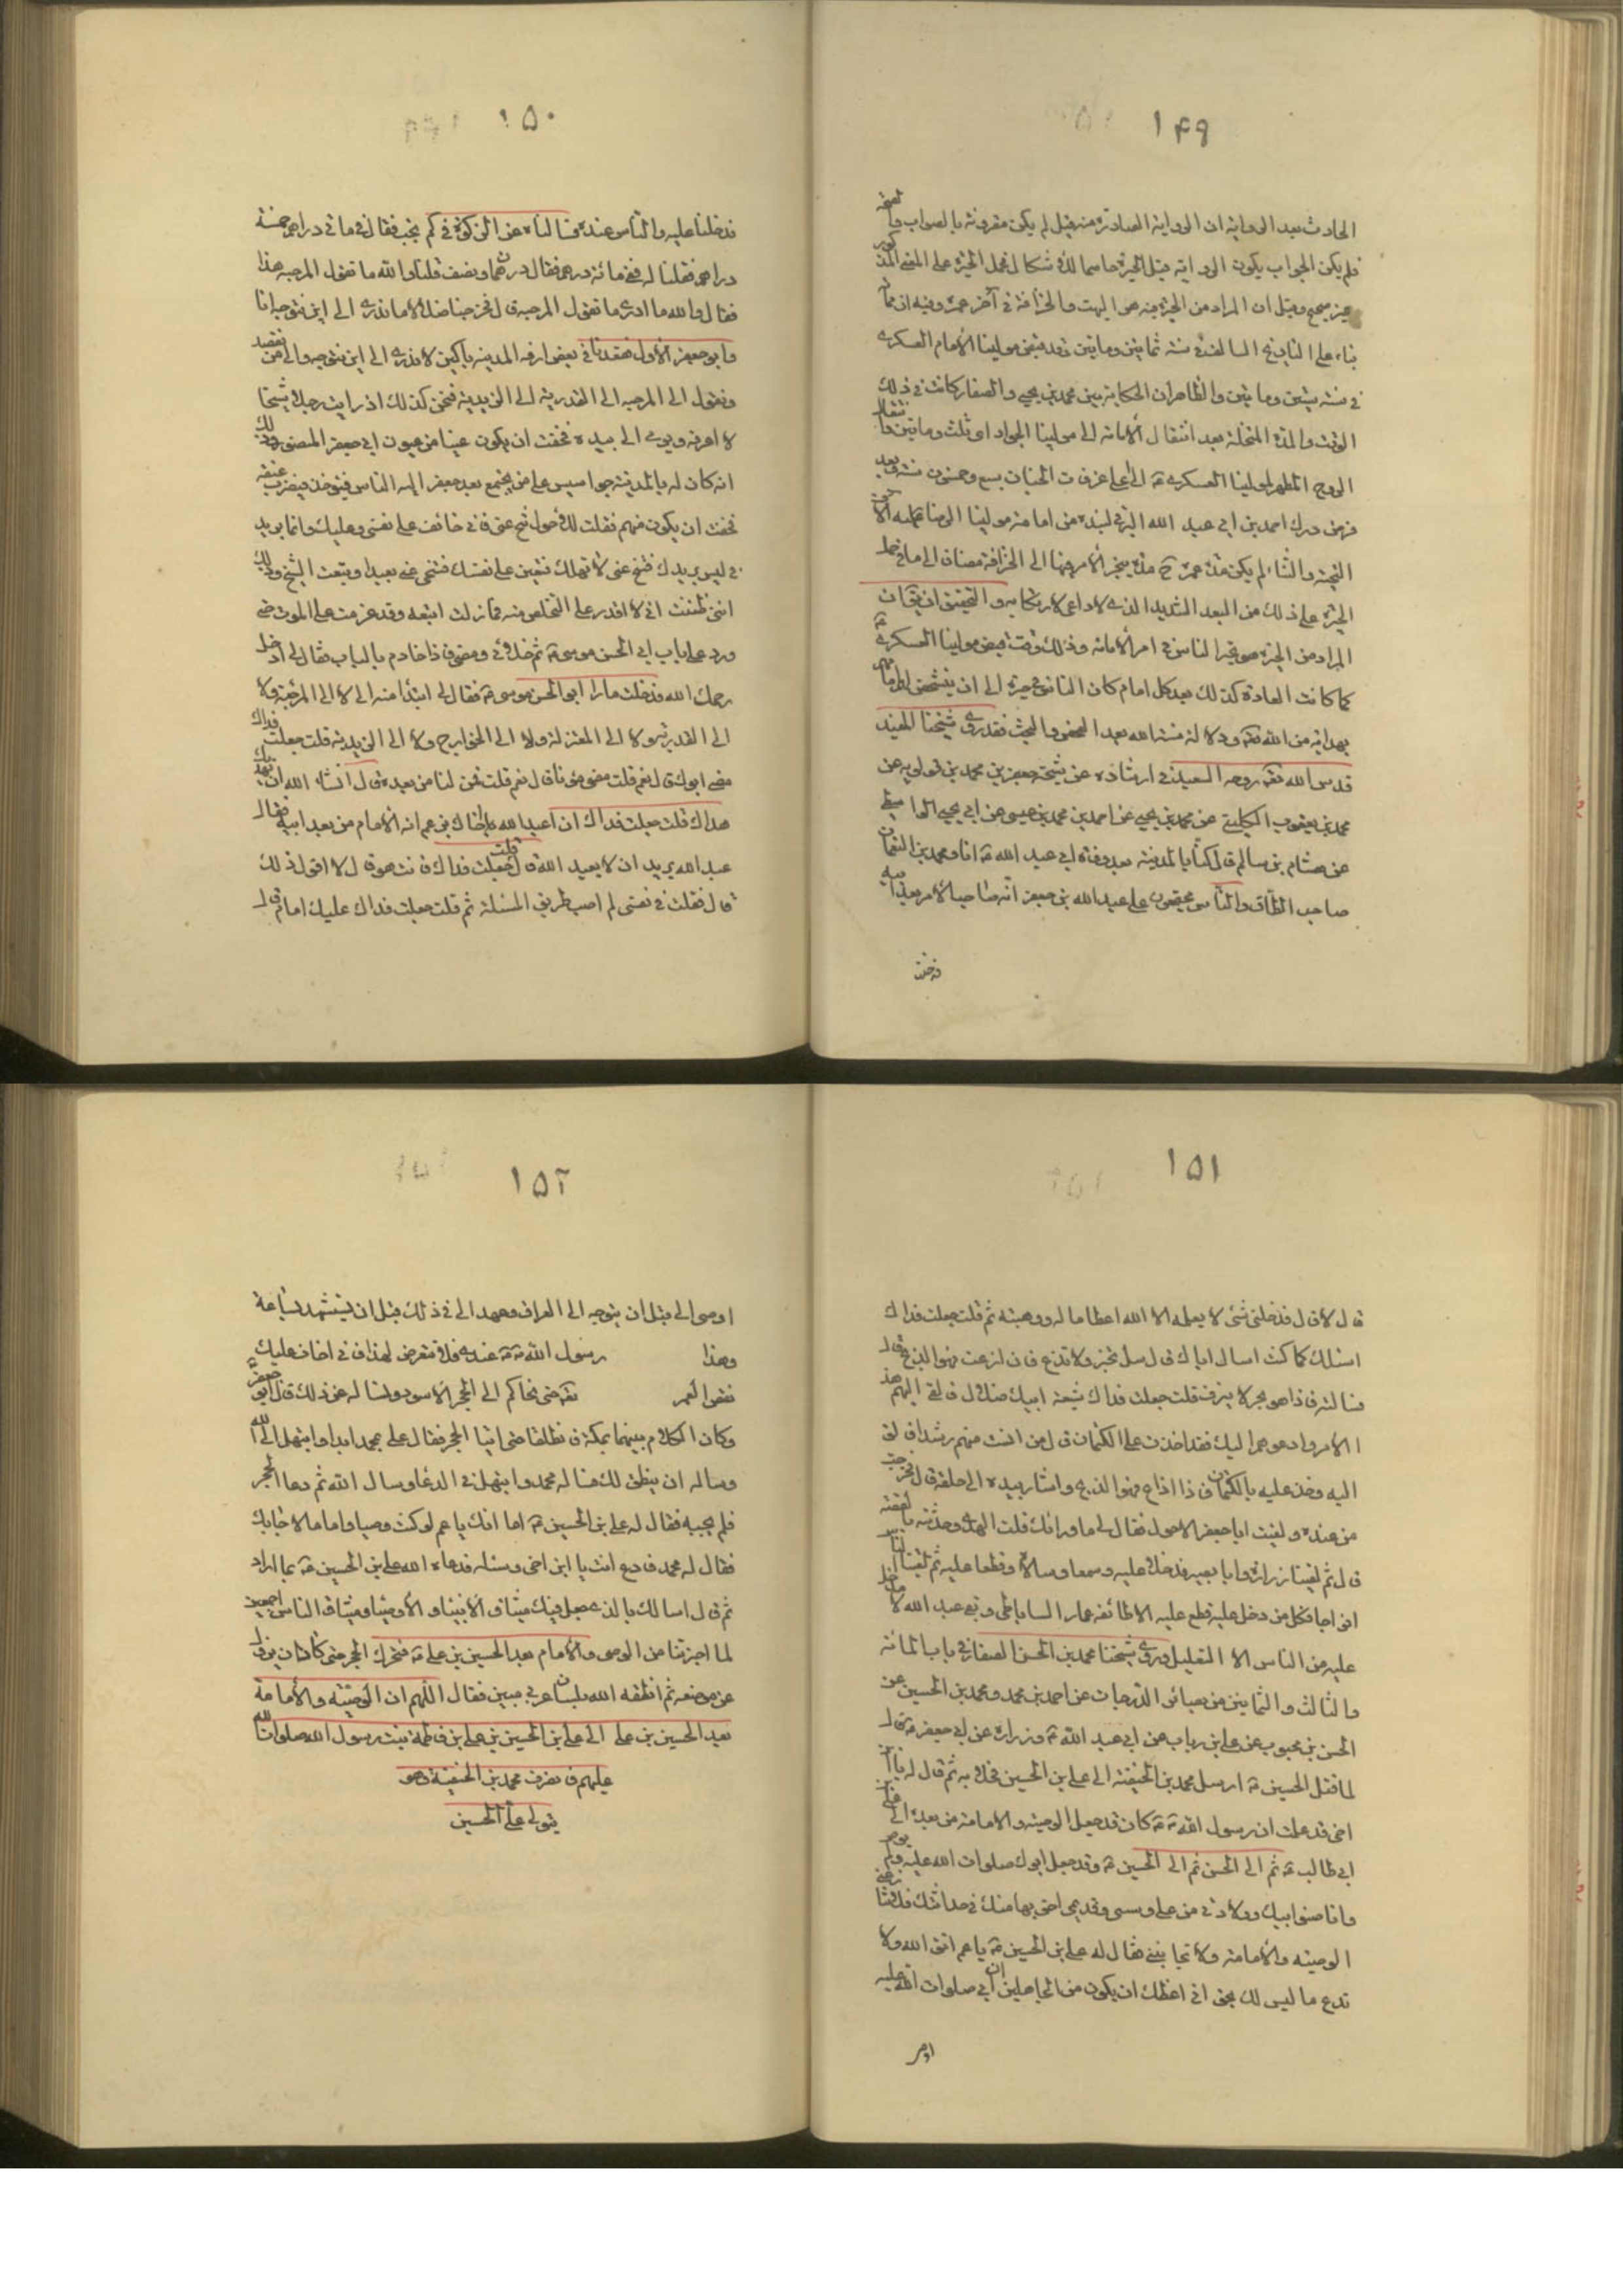 ١٤٩
الحادث بعد الرواية ان الرواية الصادرة منه قبل لم يكن مقرونة بالصواب
فلم يكن الجواب يكون الرواية قبل الحيرة حاسما للاشكال لحمل الحيرة على المعنى المذكور
غير صحيح وقيل ان المراد من الحيرة هو البهت والخرافة في آخر عمره وفيه ان
بناء على التاريخ السالف في سنة ثمانين ومايتين وقد قبض مولينا الأمام العسكرى
في سنة ستين ومايتين والظاهر ان الحكاية بين محمد بن يحيى والصفار كانت في ذلك
الوقت والمدة المتخللة بعد انتقال الأمامة الى مولينا الجواد ثلث ومايتين وانتقال
الروح المطهر لمولينا العسكرى الى على غرفات الجنان سبع وخمسون سنة
فزمن درك احمد بن ابى عبد الله البرقى لنبذة من امامة مولينا الرضا عليه آلاف
التحية والثناء لم يكن مدة عمره مدة ينجر الأمر منها الى الخرافة مضافا الى ما في حمل
الحيرة على ذلك من البعد الشديد الذى لا داعى لارتكابه والتحقيق ان يقال ان
المراد من الحيرة هو تحير الناس في امر الأمامة وذلك وقت قبض مولينا العسكرى
كما كانت العادة كذلك بعد كل امام كان الناس في حيرة الى ان يتشخص لهم
بهداية من الله تعالى ودلالة منة الله بعد الفحص والبحث فقد روى شيخنا المفيد
قدس الله تعالى روحه السعيد في ارشاده عن شيخه جعفر بن محمد بن قولويه عن
محمد بن يعقوب الكلينى عن محمد بن يحيى عن احمد بن محمد بن عيسى عن ابى يحيى الواسطى
عن هشام بن سالم قال كنا بالمدينة بعد وفاة ابى عبد الله ع انا ومحمد بن النعمان
صاحب الطاق والناس مجتمعون على عبد الله بن جعفر انه صاحب الأمر بعد ابيه
فدخلنا
١٥٠
فدخلنا عليه والناس عنده فسالناه عن الزكوة في كم يجب فقال في مائتى دراهم خمسة
دراهم فقلنا له ففى مائة درهم فقال درهمان ونصف قلنا والله ما تقول المرجئة هذا
فقال والله ما ادرى ما تقول المرجئة قال فخرجنا ضلالا ما ندرى الى اين نتوجه انا
وابو جعفر الأول فقعدنا في بعض ازقة المدينة باكين لا ندرى الى اين نتوجه والى من نقصد
ونقول الى المرجئة الى القدرية الى الزيدية فنحن كذلك اذ رايت رجلا شيخا
لا اعرفه يومى الى بيده فخفت ان يكون عينا من عيون ابى جعفر المنصور وذلك
انه كان له بالمدينة جواسيس على من يجتمع بعد جعفر اليه الناس فيؤخذ فيضرب عنقه
فخفت ان يكون منهم فقلت للاحول تنح عنى فانى خائف على نفسى وعليك وانما يريد
نى ليس يريدك فتنح عنى لا تهلك فتعين على نفسك فتنحى عنى بعيدا وتبعت الشيخ وذلك
اننى ظننت انى لا اقدر على التخلص منه فما زلت اتبعه وقد عزمت على الموت حتى
ورد على باب ابى الحسن موسى ع ثم خلانى ومضى فاذا خادم بالباب فقال لى ادخل
رحمك الله فدخلت فاذا ابو الحسن موسى ع فقال لى ابتدا منه الى لا الى المرجئة ولا
الى القدرية ولا الى المعتزلة ولا الى الخوارج ولا الى الزيدية قلت جعلت فداك
مضى ابوك قال نعم قلت مضى موتا قال نعم قلت فمن لنا من بعده قال ان شاء الله ان يهديك
هداك قلت جعلت فداك ان عبد الله اخاك يزعم انه الأمام من بعد ابيه فقال
عبد الله يريد ان لا يعبد الله قال قلت جعلت فداك فانت هو قال لا اقول ذلك
قال فقلت في نفسى لم اصب طريق المسئلة ثم قلت جعلت فداك عليك امام قال
١٥١
قال لا قال فدخلنى شئ لا يعلمه الا الله اعظاما له وهيبة ثم قلت جعلت فداك
اسئلك كما كنت اسال اباك قال سل تخبر ولا تذع فان اذعت فهو الذبح قال
فسالته فاذا هو بحر لا ينزف قلت جعلت فداك شيعة ابيك ضلال فالقى اليهم هذا
الأمر وادعوهم اليك فقد اخذت على الكتمان قال من انست منهم رشدا فالق
اليه وخذ عليه بالكتمان فاذا اذاع فهو الذبح واشار بيده الى حلقه قال فخرجت
من عنده ولقيت ابا جعفر الاحول فقال لى ما ورائك قلت الهدى وحدثته بالقصة
قال ثم لقينا زرارة وابا بصير فدخلا عليه وسمعا وسالاه وقطعا عليه ثم لقينا الناس
افواجا فكل من دخل عليه قطع عليه الا طائفة عمار الساباطى وبقى عبد الله لا يدخل
عليه من الناس الا القليل وروى شيخنا محمد بن الحسن الصفار في باب المائة
والثالث والثمانين من بصائر الدرجات عن احمد بن محمد ومحمد بن الحسين عن
الحسن بن محبوب عن على بن رياب عن ابى عبد الله ع وزرارة عن ابى جعفر ع قال
لما قتل الحسين ع ارسل محمد بن الحنفية الى على بن الحسين فخلا به ثم قال له يا ابن
اخى قد علمت ان رسول الله ص كان قد جعل الوصية والامامة من بعده الى على بن
ابى طالب ع ثم الى الحسن ثم الى الحسين ع وقد جعل ابوك صلوات الله عليه ولم يوص
وانا صنو ابيك وولادتى من على وسنى وقدمى احق بها منك في حداثتك فلا تنازعنى
الوصية والأمامة ولا تجانبنى فقال له على بن الحسين ع يا عم اتق الله ولا
تدع ما ليس لك بحق انى اعظك ان يكون من الجاهلين ان ابى صلوات الله عليه
اوصى
١٥٢
اوصى الى قبل ان يتوجه الى العراق وعهد الى في ذلك قبل ان يستشهد بساعة
وهذا رسول الله ص عندى فلا تتعرض لهذا فانى اخاف عليك
نقص العمر تعال حتى نتحاكم الى الحجر الاسود ونساله عن ذلك قال ابو جعفر
وكان الكلام بينهما بمكة فانطلقا حتى اتيا الحجر فقال على لمحمد ابدا وابتهل الى الله
وساله ان ينطق لك فساله محمد وابتهل في الدعا وسال الله ثم دعا الحجر
فلم يجبه فقال له على بن الحسين ع اما انك يا عم لو كنت وصيا واماما لاجابك
فقال له محمد فادع انت يا ابن اخى وسئله فدعاه الله على بن الحسين ع بما اراد
ثم قال اسالك بالذى جعل فيك ميثاق الأنبياء والأوصياء وميثاق الناس اجمعين
لما اخبرتنا من الوصى والأمام بعد الحسين بن على ع فتحرك الحجر حتى كاد ان يزول
عن موضعه ثم انطقه الله بلسان عربى مبين فقال اللهم ان الوصية والأمامة
بعد الحسين بن على الى على بن الحسين بن على بن فاطمة بنت رسول الله صلوات الله
عليهم فانصرف محمد بن الحنفية وهو
يتولى على الحسين